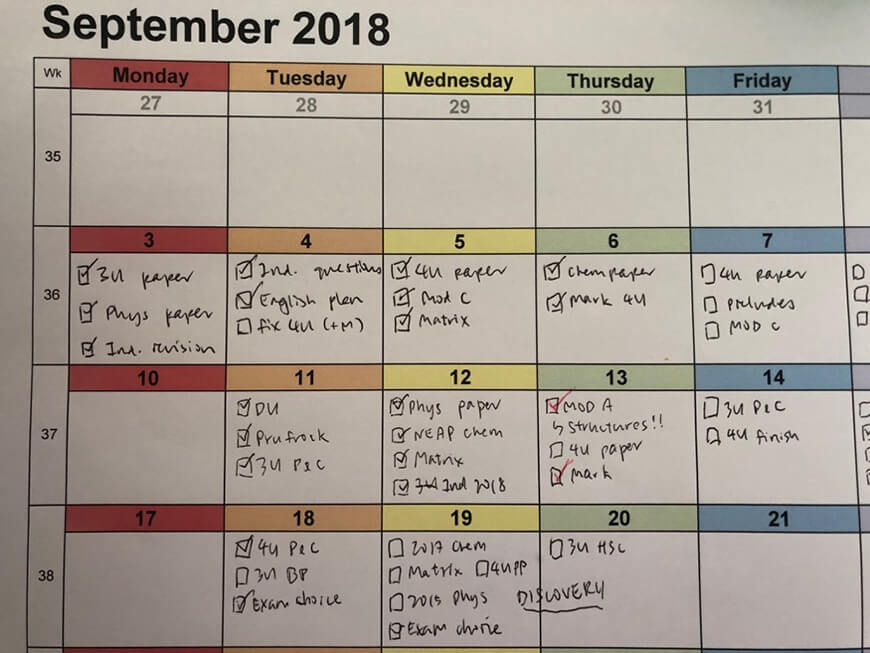 September 2018
Wk Monday Tuesday Wednesday Thursday Friday
27 28 29 30 31
35
3 4 5 6 7
36
3U paper
Phys paper
Ind. revision
Ind. questions
English plan
fix 4U (+M)
4U paper
Mod C
Matrix
Chem paper
Mark 4U
4U paper
preludes
MOD C
10 11 12 13 14
37
DU
Prufrock
3U P&C
Phys paper
NEAP chem
Matrix
Ind 2018
MOD A
↳ structures!!
4U paper
Mark
3U P&C
4U finish
17 18 19 20 21
38
4U P&C
3U BP
Exam choice
2017 Chem
Matrix 4U PP
2015 Phys
Exam choice
3U HSC
DISCOVERY